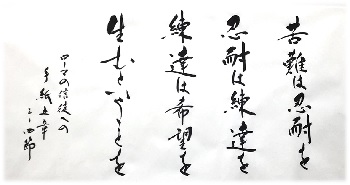 苦難は忍耐を
忍耐は練達を
練達は希望を
生むということを
ローマの信徒への
手紙五章
三～四節